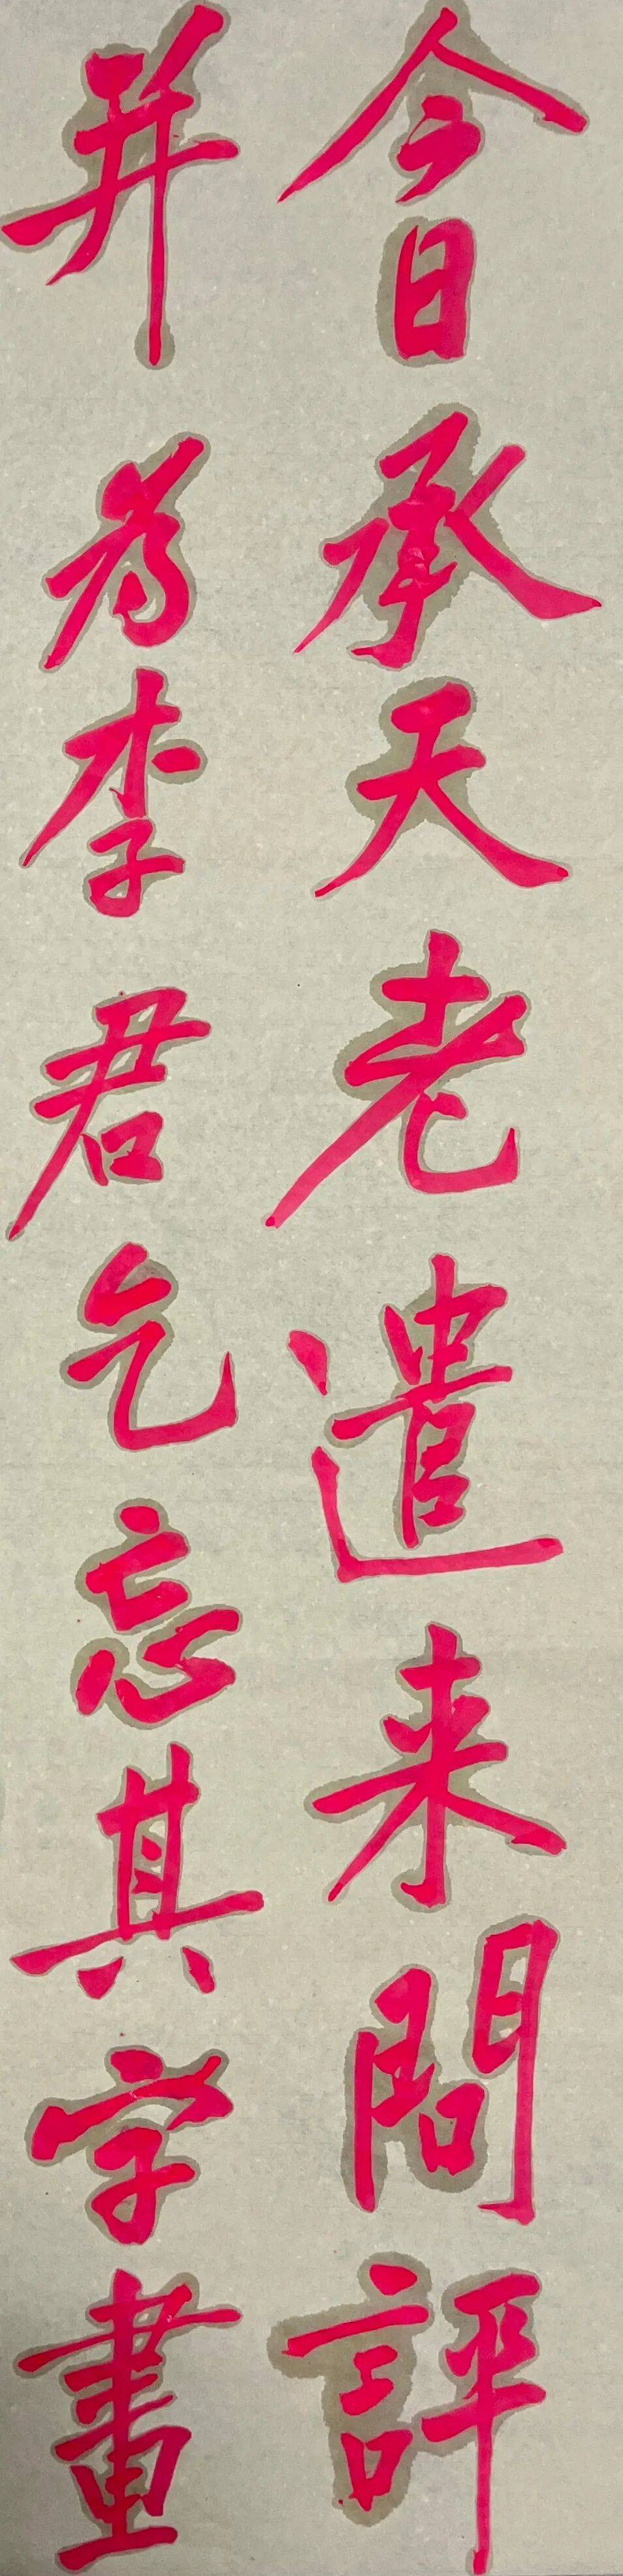 今日承天老遣来問評
并为李君乞忘其字畫